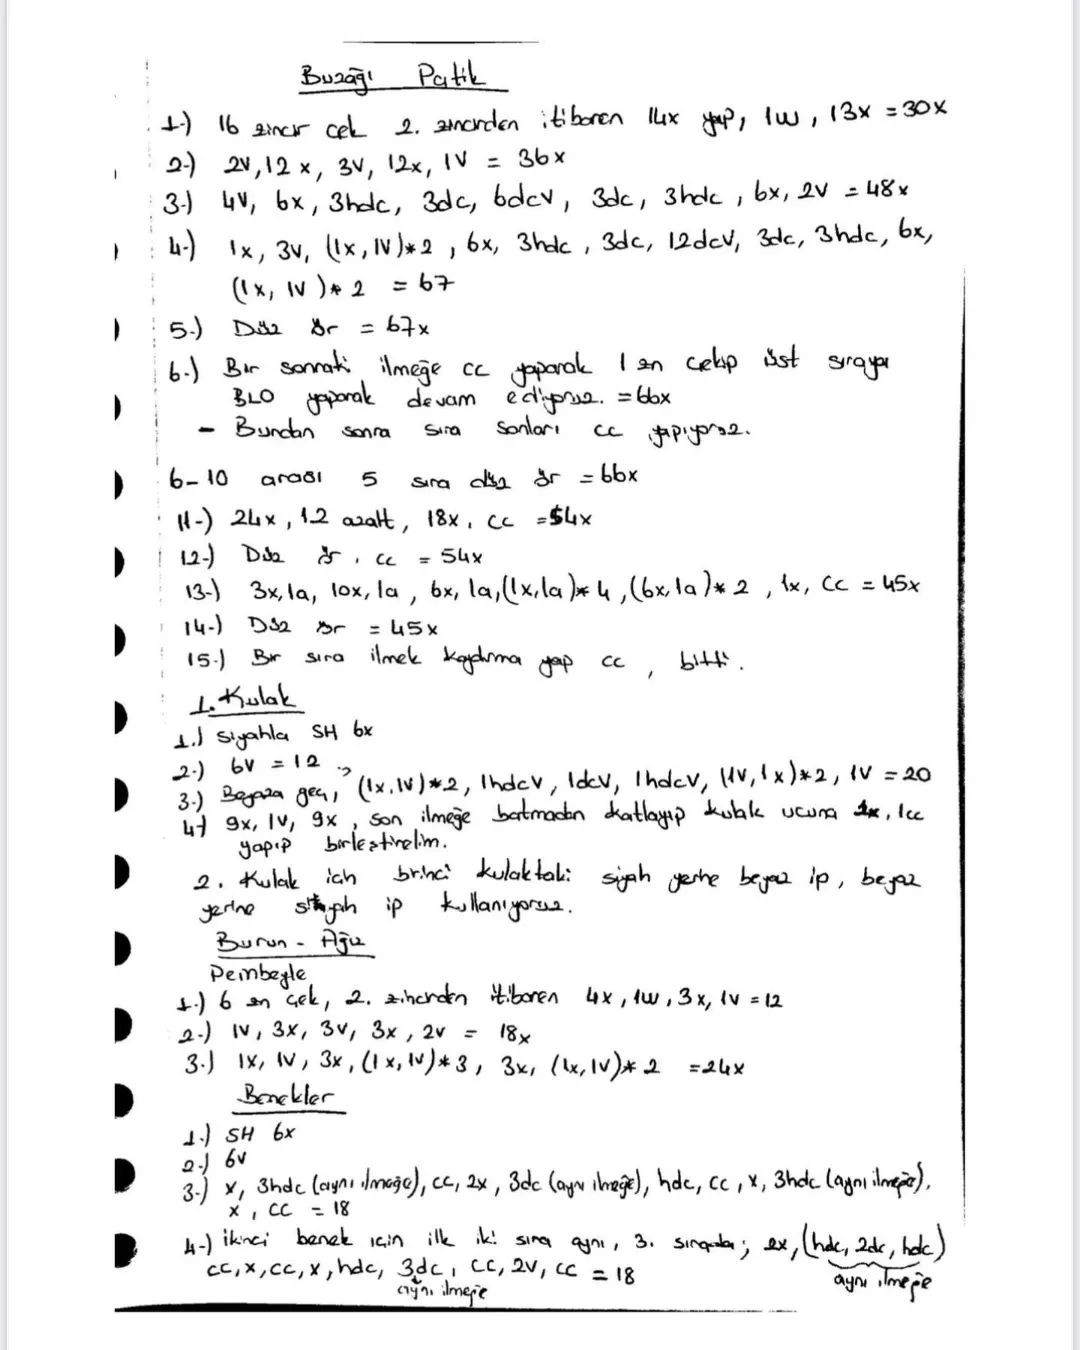 Buzağı Patik
1-) 16 zincir çek 2. zincirden itibaren 14x yap, 1w, 13x = 30x
2-) 2V, 12x, 3V, 12x, 1V = 36x
3-) 4V, 6x, 3hdc, 3dc, 6dcv, 3dc, 3hdc, 6x, 2V = 48x
4-) 1x, 3V, (1x, 1V)*2, 6x, 3hdc, 3dc, 12dcV, 3dc, 3hdc, 6x,
(1x, 1V)*2 = 67
5-) Düz ör = 67x
6-) Bir sonraki ilmeğe cc yaparak 1 zn çekip üst sıraya
BLO yaparak devam ediyoruz. = 66x
- Bundan sonra sıra sonları cc yapıyoruz.
6-10 arası 5 sıra düz ör = 66x
11-) 24x, 12 azalt, 18x, cc = 54x
12-) Düz ör, cc = 54x
13-) 3x, 1a, 10x, 1a, 6x, 1a, (1x, 1a)*4, (6x, 1a)*2, 1x, cc = 45x
14-) Düz ör = 45x
15-) Bir sıra ilmek kaydırma yap cc, bitti.
1. Kulak
1-) Siyahla SH 6x
2-) 6V = 12
3-) Beyaza geç, (1x, 1V)*2, 1hdcV, 1dcV, 1hdcV, (1V, 1x)*2, 1V = 20
4-) 9x, 1V, 9x, son ilmeğe batmadan katlayıp kulak ucuna 2x, 1cc
yapıp birleştirelim.
2. Kulak için birinci kulaktaki siyah yerine beyaz ip, beyaz
yerine siyah ip kullanıyoruz.
Burun - Ağız
Pembeyle
1-) 6 zn çek, 2. zincirden itibaren 4x, 1w, 3x, 1V = 12
2-) 1V, 3x, 3V, 3x, 2V = 18x
3-) 1x, 1V, 3x, (1x, 1V)*3, 3x, (1x, 1V)*2 = 24x
Benekler
1-) SH 6x
2-) 6V
3-) x, 3hdc (aynı ilmeğe), cc, 2x, 3dc (aynı ilmeğe), hdc, cc, x, 3hdc (aynı ilmeğe),
x, cc = 18
4-) İkinci benek için ilk iki sıra aynı, 3. sırada; 2x, (hdc, 2dc, hdc)
cc, x, cc, x, hdc, 3dc, cc, 2V, cc = 18
aynı ilmeğe
aynı ilmeğe